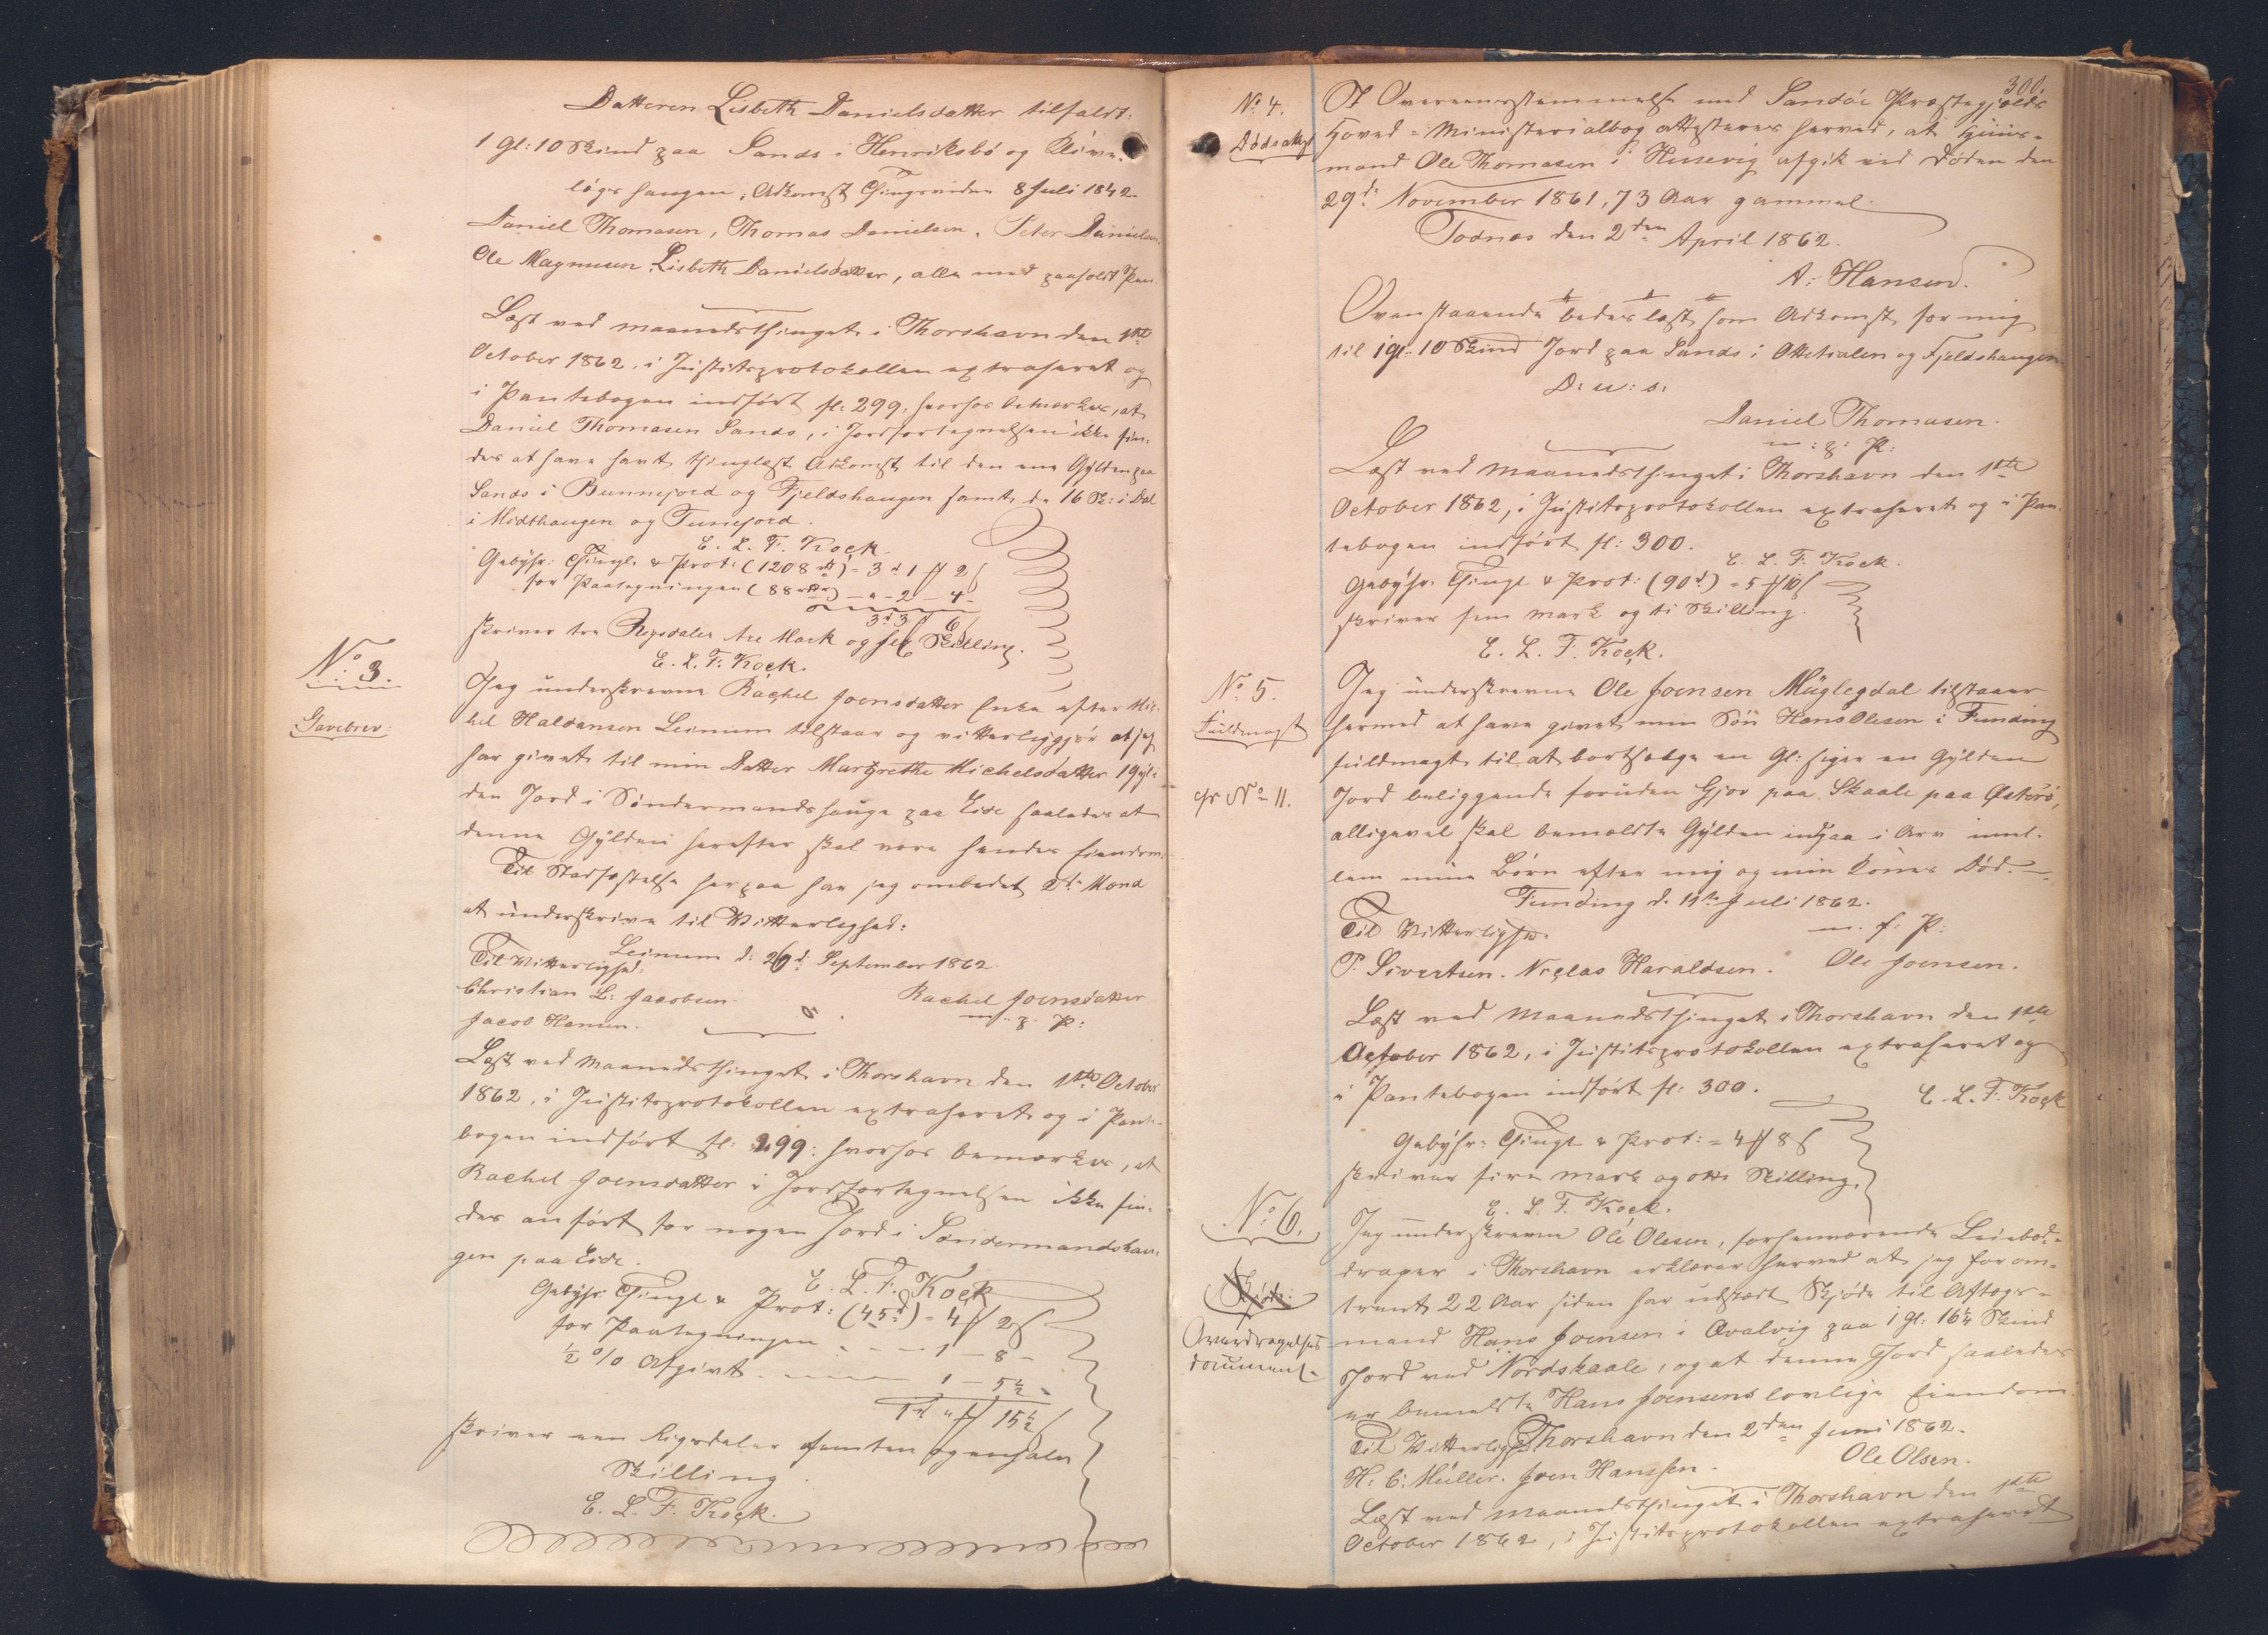 Datteren Lisbeth Danielsdatter tilfaldt:
1 Gl: 10 Skind paa Sands i Henriksbø og
løgs haugen, Adkomst Thingsviden 8 Juli 1842.
Daniel Thomasen, Thomas Danielsen, Peter Danielsen,
Ole Magnusen, Lisbeth Danielsdatter, alle med paaholdt Pen.
Læst ved Maanedsthinget i Thorshavn den 1ste
October 1862, i Justitsprotokollen extraheret og
i Pantebogen indført fl: 299, hvorhos bemærkes, at
Daniel Thomasen Sands, i Jordfortegnelsen ikke fin-
des at have havt thinglæst Adkomst til den ene Gylden paa
Sands i Bunnejord og Fjeldshaugen samt de 16 Sk: i Dal
i Midthaugen og Tuniejord.
E. L. F. Kock.
Gebyhr: Thingl. & Prot: (1208 rd) = 3 rd 1 # 2 ß
for Paategningen (88 rd) — " - 2 — 4 -
3 rd 3 # 6 ß
skriver tre Rigsdaler tre Mark og sex Skilling.
E. L. F. Kock.
No. 3.
Gavebrev:
Jeg underskrevne Rachel Joensdatter Enke efter Mic-
hel Haldansen Leinum tilstaar og vitterliggjør at jeg
har givet til min Datter Margrethe Michelsdatter 1 Gyl-
den Jord i Søndermandshauge paa Eide saaledes at
denne Gylden herefter skal være hendes Eiendom.
Til Stadfæstelse herpaa har jeg ombedet 2de Mænd
at underskrive til Vitterlighed:
Leinum d: 26d September 1862.
Til Vitterlighed:
Christian L: Jacobsen. Rachel Joensdatter
Jacob Hansen. m. p. P:
Læst ved Maanedsthinget i Thorshavn den 1ste October
1862, i Justitsprotokollen extraheret og i Pante-
bogen indført fl: 299: hvorhos bemærkes, at
Rachel Joensdatter i Jordfortegnelsen ikke fin-
des anført for nogen Jord i Søndermandshau-
gen paa Eide.
E. L. F. Kock
Gebyhr: Thingl & Prot: (45 rd) = 4 # 2 ß
for Paategningen - - - 1 — 8 -
½ % Afgivt - — 1 — 5½ "
1 rd " # 15½ ß
skriver een Rigsdaler femten og en halv
Skilling
E. L. F. Kock.
300.
No. 4.
Dødsattest
I Overeensstemmelse med Sandøe Præstegjælds
Hoved-Ministerialbog attesteres herved, at Huus-
mand Ole Thomasen i Husevig afgik ved Døden den
29d November 1861, 73 Aar gammel.
Todnæs den 2den April 1862.
A: Hansen.
Ovenstaaende bedes læst som Adkomst for mig
til 1 gl: 10 Skind Jord paa Sands i Ottetialen og Fjeldshaugen
D: u: s:
Daniel Thomasen.
m: p: P:
Læst ved Maanedsthinget i Thorshavn den 1ste
October 1862, i Justitsprotokollen extraheret og i Pan-
tebogen indført fl: 300.
E. L. F. Kock.
Gebyhr: Thingl & Prot: (90 rd) = 5 # 10 ß
skriver fem Mark og ti Skilling.
E. L. F. Kock.
No. 5.
Fuldmagt
cfr No 11.
Jeg underskrevne Ole Joensen Müglegdal tilstaaer
hermed at have givet min Søn Hans Olesen i Funding
fuldmagt til at bortsælge en Gl: siger en Gylden
Jord beliggende foruden Gjov paa Skaale paa Østerø,
alligevel skal bemeldte Gylden indgaa i Arv imel-
lem mine Børn efter mig og min Kones Død.
Funding d. 11te Juli 1862.
Til Vitterlighed. m. f. P:
P. Sivertsen. Niclas Haraldsen. Ole Joensen.
Læst ved Maanedsthinget i Thorshavn den 1ste
October 1862, i Justitsprotokollen extraheret og
i Pantebogen indført fl: 300.
E. L. F. Kock
Gebyhr: Thingl & Prot: = 4 # 8 ß
skriver fire Mark og otte Skilling.
E. L. F. Kock.
No. 6.
Skjøde:
Overdragelses
document.
Jeg underskrevne Ole Olesen, forhenværende Leiebed-
drager i Thorshavn erklærer herved at jeg for om-
trent 22 Aar siden har udstædt Skjøde til Aftægs-
mand Hans Joensen i Qvalvig paa 1 gl: 16¼ Skind
Jord ved Nordskaale, og at denne Jord saaledes
er bemeldte Hans Joensens lovlige Eiendom
Til Vitterlighed Thorshavn den 2den Juni 1862.
H. C. Müller. Joen Hanssen. Ole Olsen.
Læst ved Maanedsthinget i Thorshavn den 1ste
October 1862, i Justitsprotokollen extraheret